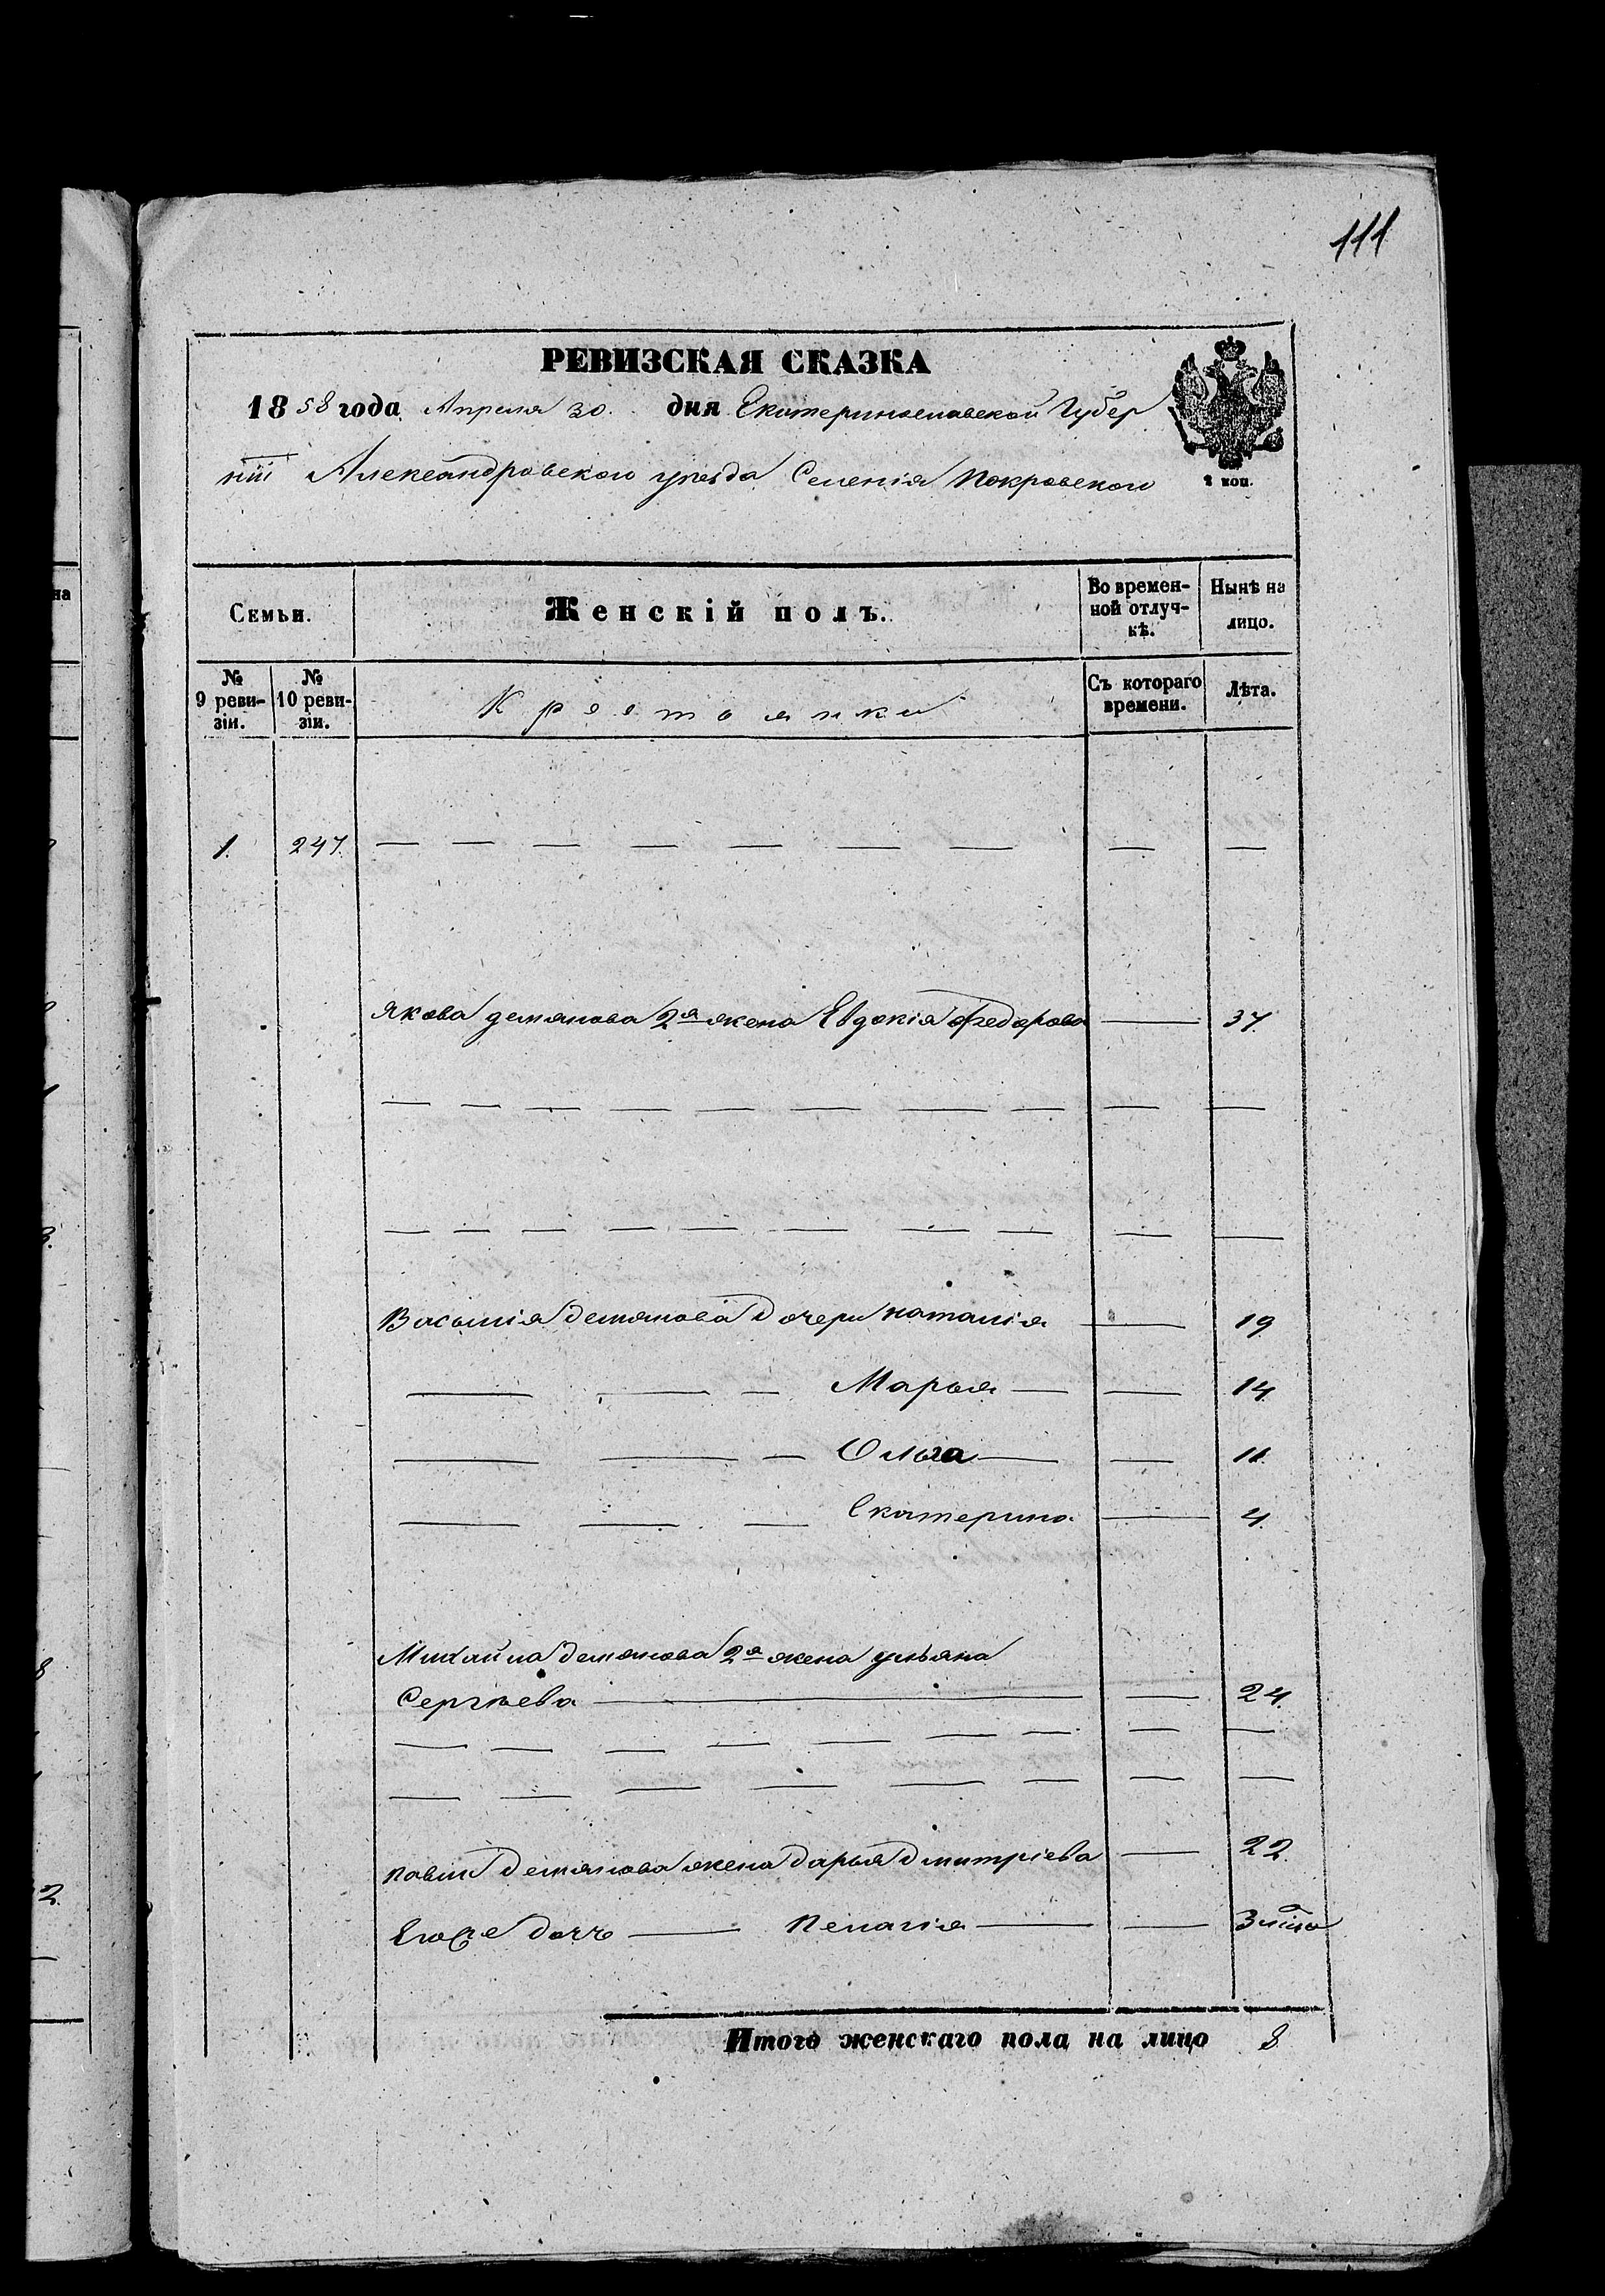 111
РЕВИЗСКАЯ СКАЗКА
1858 года Апреля 30. дня Екатеринославской Губер
ніи Александровскаго уезда Селенія Покровскаго
2 коп.
Семьи. Женскій полъ. Во времен-
ной отлуч-
кѣ. Нынѣ на
лицо.
№
9 реви-
зіи. №
10 реви-
зіи. Крестьянки Съ котораго
времени. Лѣта.
1. 247. — — — — — — — — —
Якова демянова 2я жена Евдокія Федорова — 37.
— — — — — — — — — —
— — — — — — — — — —
Василія Демянова дочери Наталія — 19
— — — Марья — — 14.
— — — Ольга — — 11.
— — — Екатерина — 4.
Михайла Демянова 2я жена ульяна
Сергѣева — — 24.
— — — — — — — — —
— — — — — — — — —
Павла Демянова жена Дарья Дмитріева — 22.
Его же дочь — Пелагія — —
Итого женскаго пола на лицо 8